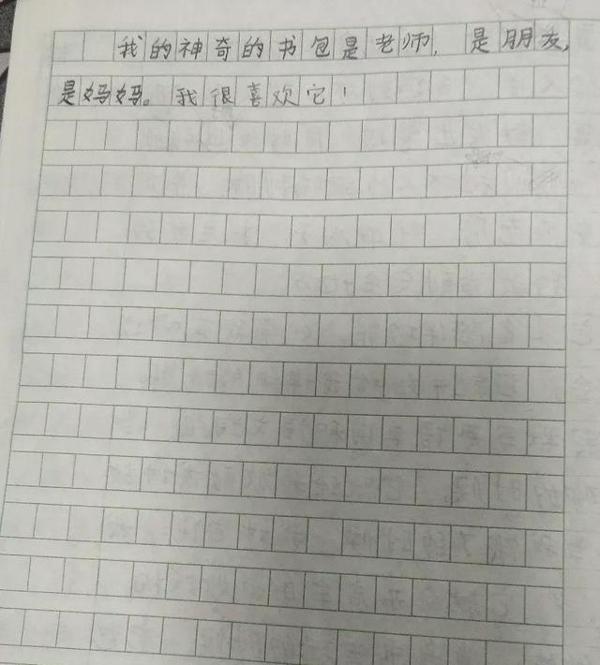 我的神奇的书包是老师,是朋友,
是妈妈。我很喜欢它!